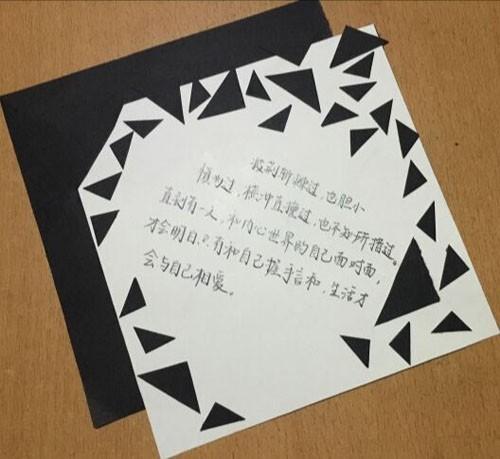 披荆斩棘过，也胆小
懦弱过，横冲直撞过，也不知所措过。
直到有一天，和内心世界的自己面对面，
才会明白只有和自己握手言和，生活才
会与自己相爱。